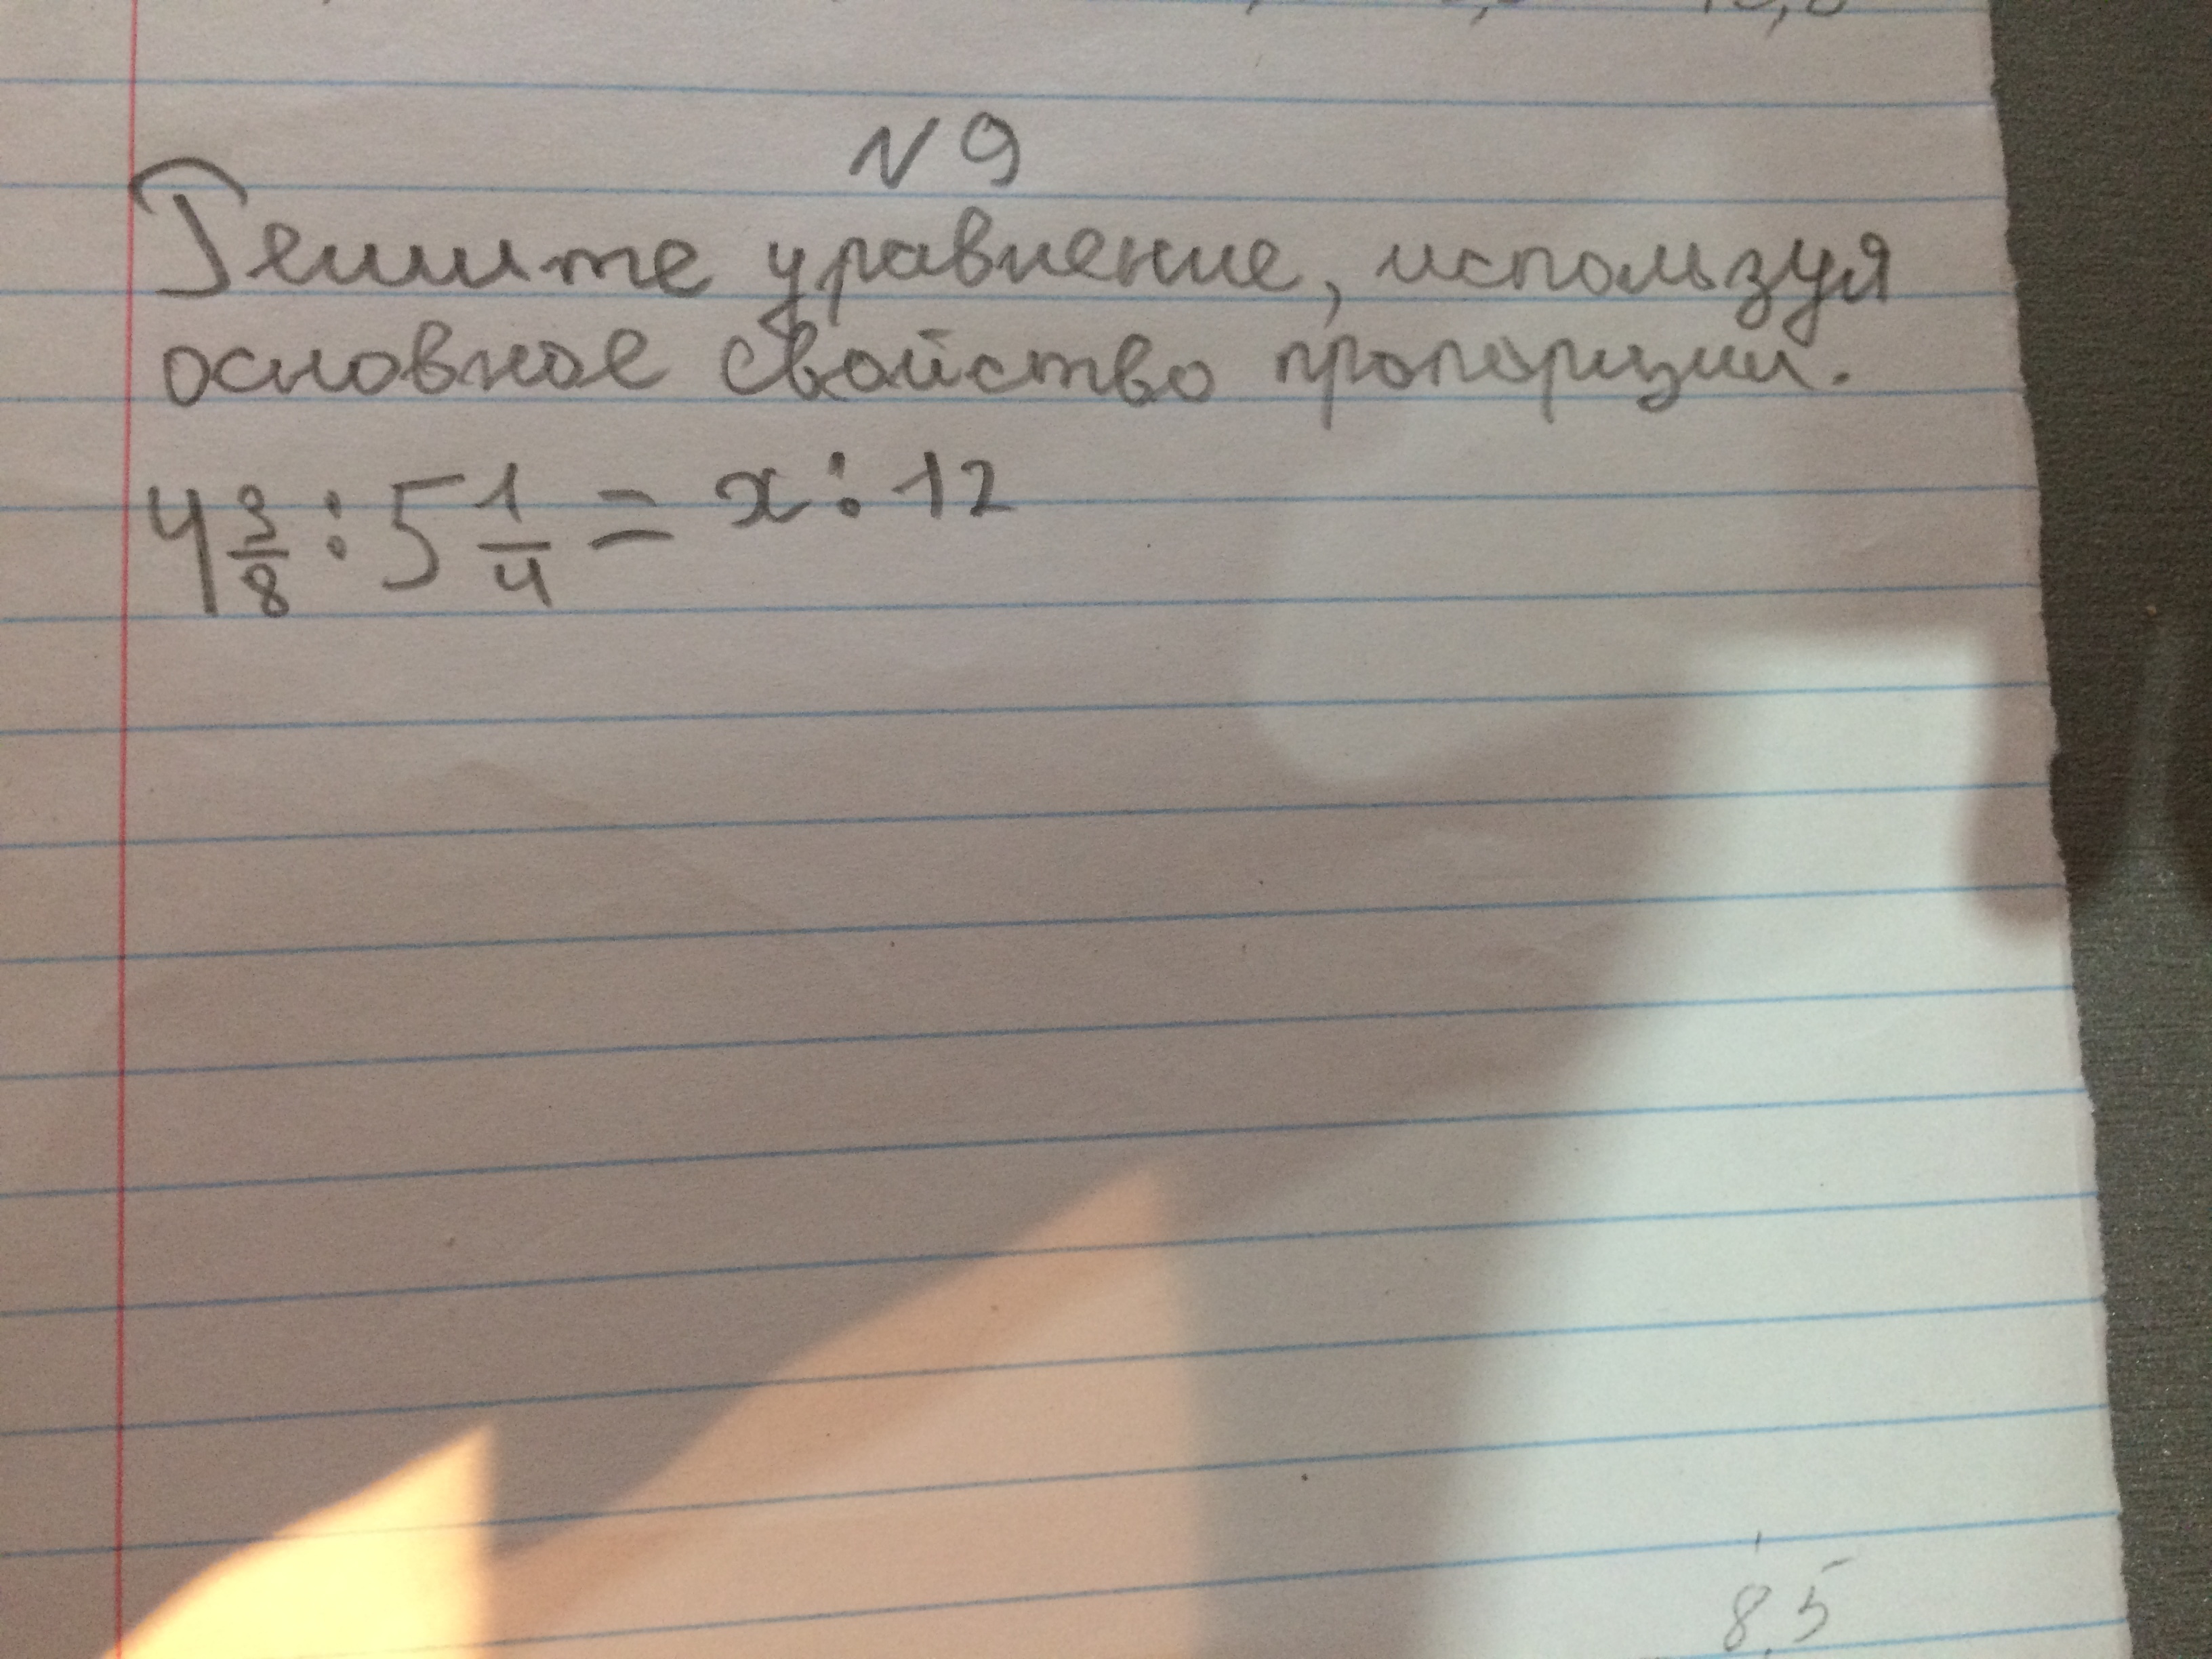 № 9
Решите уравнение, используя
основное свойство пропорции.
4 3/8 : 5 1/4 = x : 12
8,5